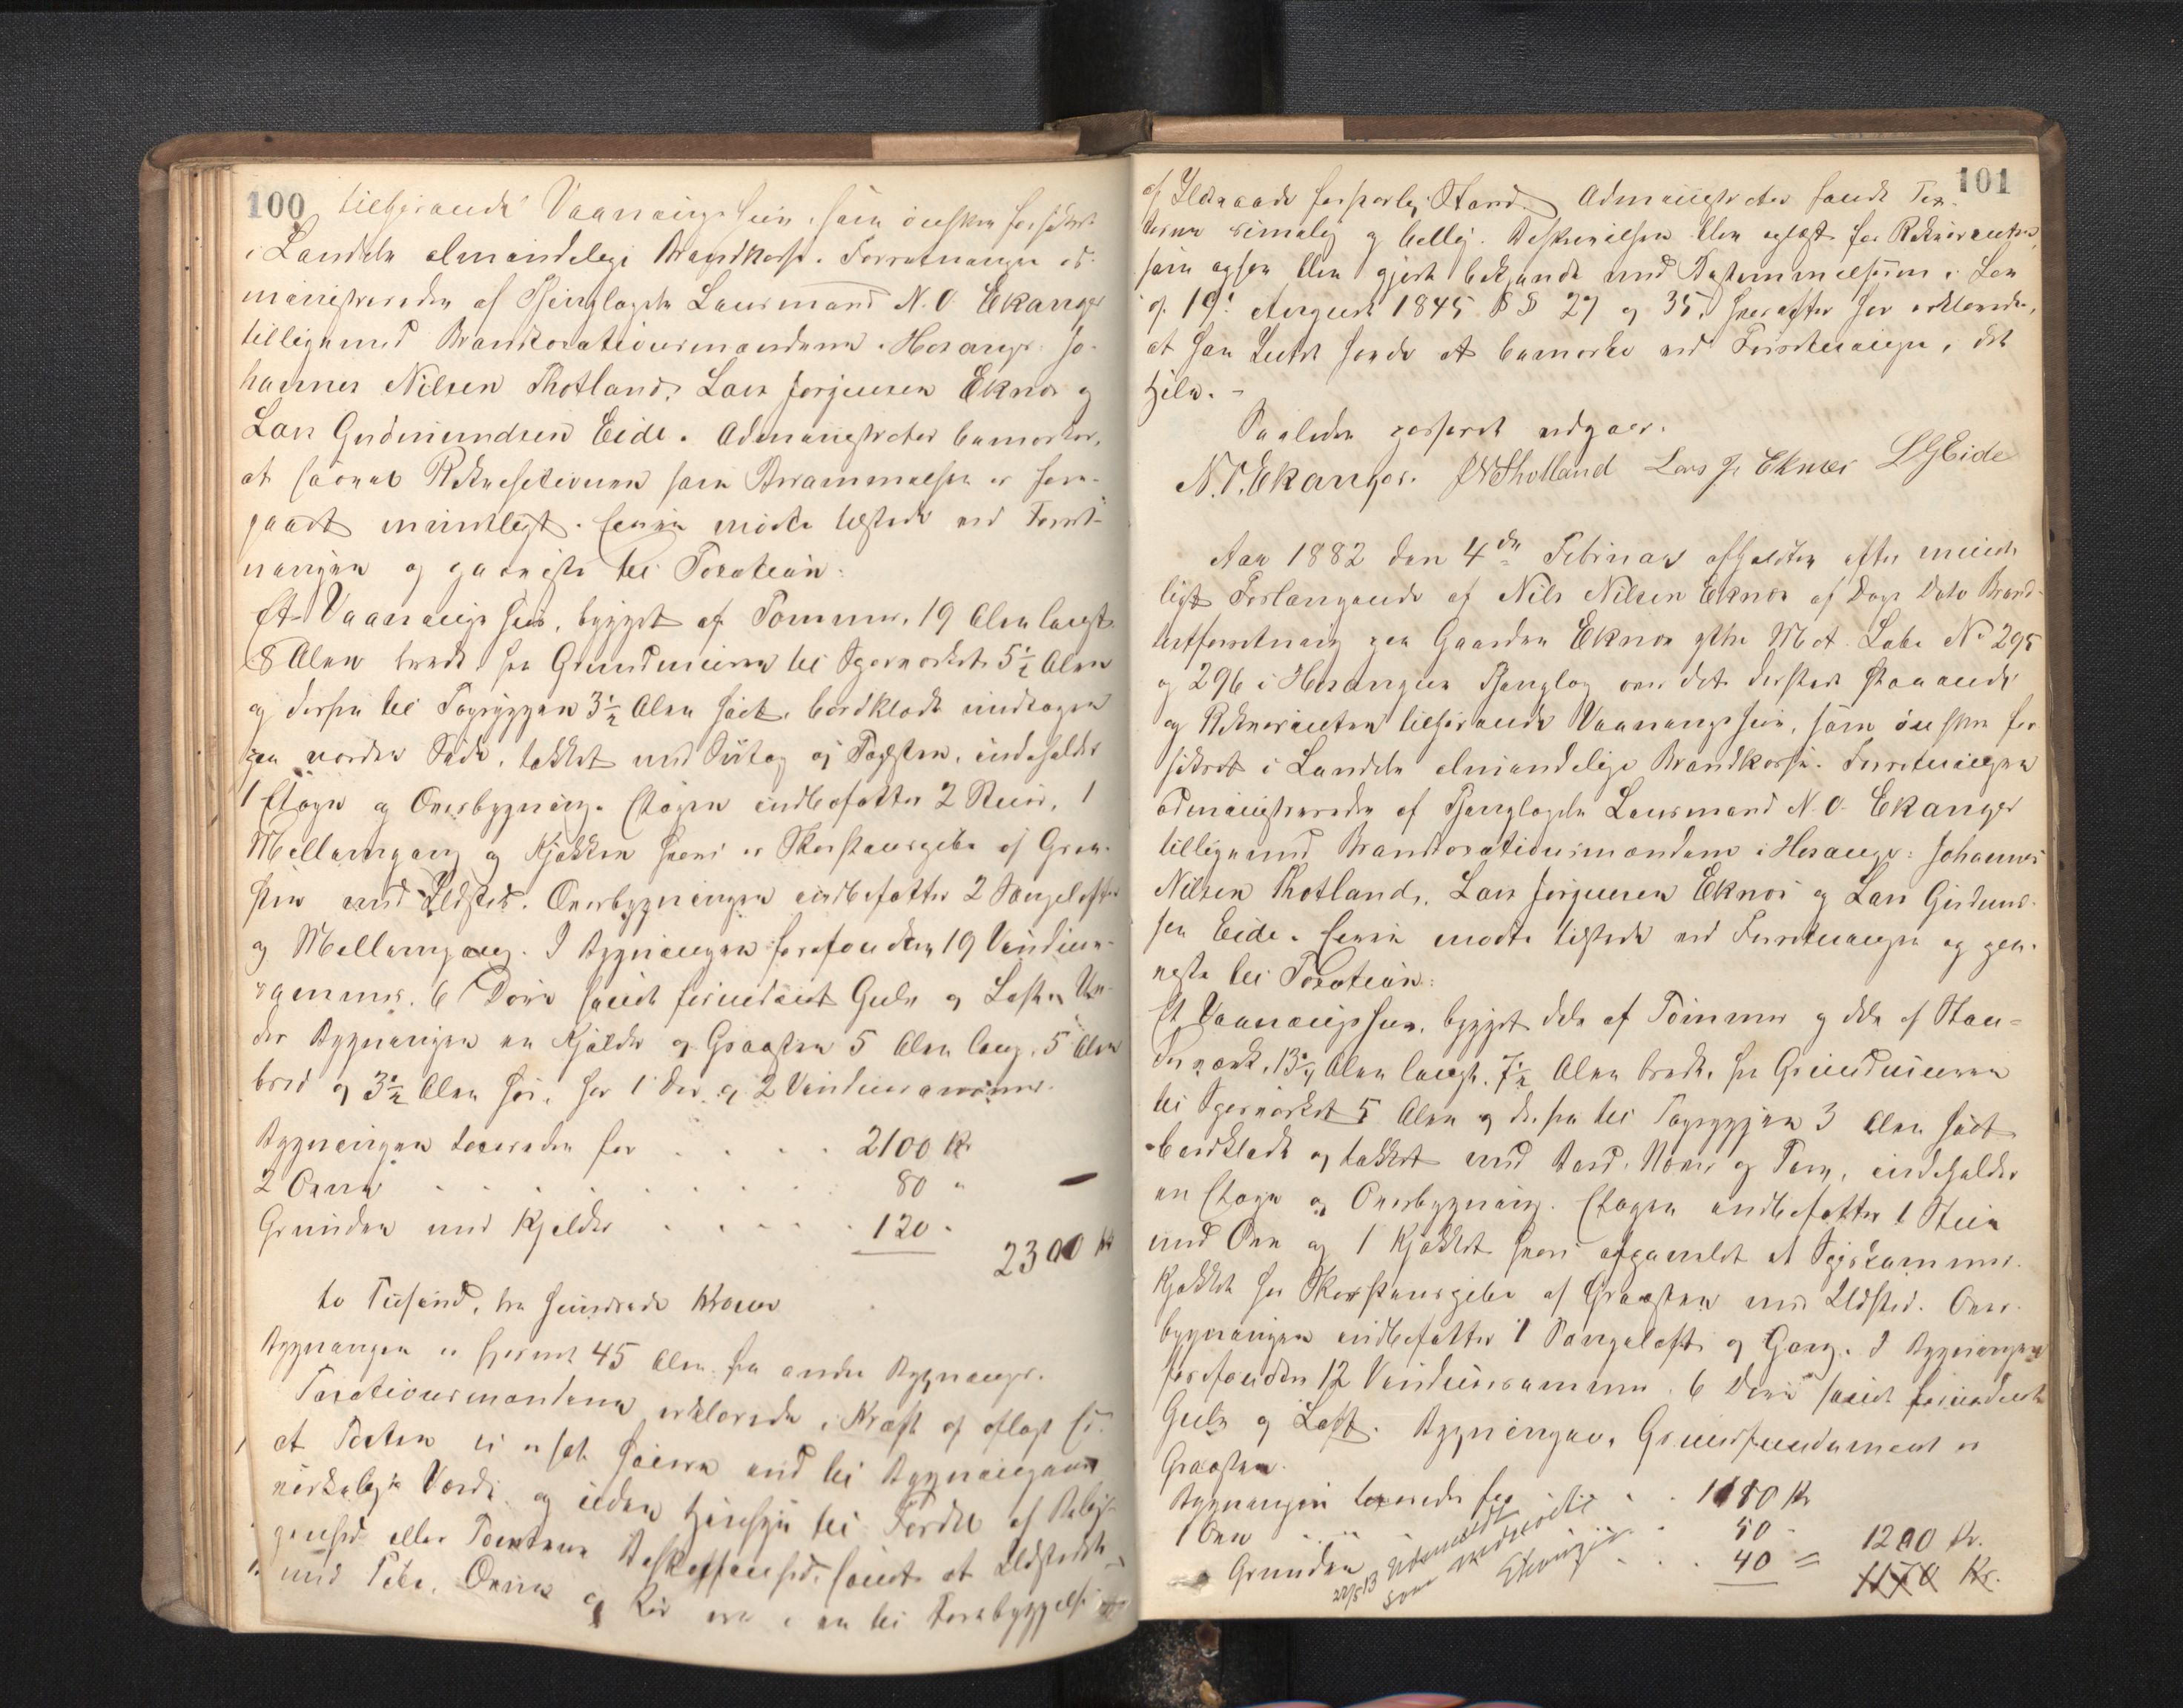 100
tilhørende Vaaningshuus, som ønskes forsikret
i Landets almindelige Brandkasse. Forretningen ad-
ministreredes af Thinglagets Lensmand N. O. Ekanger
tilligemed Brandtaxationsmændene i Hosanger: Jo-
hannes Nilsen Tholland, Lars Jørgensen Eknæs og
Lars Gudmundsen Eide. Administrator bemærker,
at saavel Rekvisitionen som Berammelsen er fore-
gaaet mundtligt. Enken mødte tilstede ved Forret-
ningen og paaviste til Taxation:
Et Vaaningshuus, bygget af Tømmer, 19 Alen langt
8 Alen bredt, fra Grundmuren til Sperreværket 5 1/2 Alen
og derfra til Tagryggen 3 1/2 Alen høit, bordklædt undtagen
paa nordre Side, tækket med Sutag og Tagsten, indeholder
1 Etage og Overbygning. Etagen indbefatter 2 Stuer, 1
Mellemgang og Kjøkken hvori er Skorstenspibe af Graa-
sten med Ildsted. Overbygningen indbefatter 2 Sængelofter
og Mellemgang. I Bygningen forefandtes 19 Vindues-
rammer, 6 Døre samt fornødent Gulv og Loft. Un-
der Bygningen en Kjelder af Graasten 5 Alen lang, 5 Alen
bred og 3 1/2 Alen høi, har 1 Dør og 2 Vinduesrammer.
Bygningen taxeredes for . . . . 2100 Kr
2 Ovne . . . . . . . . . 80 "
Grunden med Kjelder . . . . . 120 "
2300 Kr
to Tusind, tre Hundrede Kroner
Bygningen er fjernet 45 Alen fra andre Bygninger.
Taxationsmændene erklærede i Kraft af aflagt Ed,
at Taxten ei er sat høiere end til Bygningens
virkelige Værdi og uden Hensyn til Fordel af Belig-
genhed eller Tomtens Beskaffenhed, samt at Ildstedet
med Pibe, Ovne og Rør ere i en til Forebyggelse
101
af Ildsvaade forsvarlig Stand. Administrator fandt Tax-
terne rimelig og billig. Beskrivelsen blev oplæst for Rekvirenten,
som ogsaa blev gjort bekjendt med Bestemmelserne i Lov
af 19. August 1845 §§ 27 og 35, hvorefter han erklærede,
at han Intet havde at bemærke ved Forretningen, det
hele. -
Saaledes passeret udgaar.
N. O. Ekanger. J N Tholland Lars J. Eknæs L G Eide
Aar 1882 den 4de Februar afholdtes efter mundt-
ligt Forlangende af Nils Nilsen Eknæs af Dags Dato Brand-
taxtforretning paa Gaarden Eknæs gthe Mat. Løbe No 295
og 296 i Hosangers Thinglag over det dersteds staaende
og Rekvirenten tilhørende Vaaningshuus, som ønskes for-
sikret i Landets almindelige Brandkasse. Forretningen
administreredes af Thinglagets Lensmand N. O. Ekanger
tilligemed Brandtaxationsmændene i Hosanger: Johannes
Nilsen Tholland, Lars Jørgensen Eknæs og Lars Gudmund-
sen Eide. Eieren mødte tilstede ved Forretningen og paa-
viste til Taxation:
Et Vaaningshuus, bygget dels af Tømmer og dels af Stav-
derværk, 13 1/4 Alen langt, 7 1/2 Alen bredt, fra Grundmuren
til Sperreværket 5 Alen og derfra til Tagryggen 3 Alen høit
bordklædt og tækket med Bord, Næver og Torv, indeholder
en Etage og Overbygning. Etagen indbefatter 1 Stue
med Ovn og 1 Kjøkken hvori afpanelet et Spiskammer.
Kjøkket har Skorstenspibe af Graasten med Ildsted. Over-
bygningen indbefatter 1 Sængeloft og Gang. I Bygningen
forefandtes 12 Vinduesrammer, 6 Døre samt fornødent
Gulv og Loft. Bygningens Grundfundament er
Graasten.
Bygningen taxeredes for . . . 1110 Kr
1 Ovn . . . . . . 50 " 1200 Kr.
Grunden . . . . 40 " 1150 Kr.
22/5 13